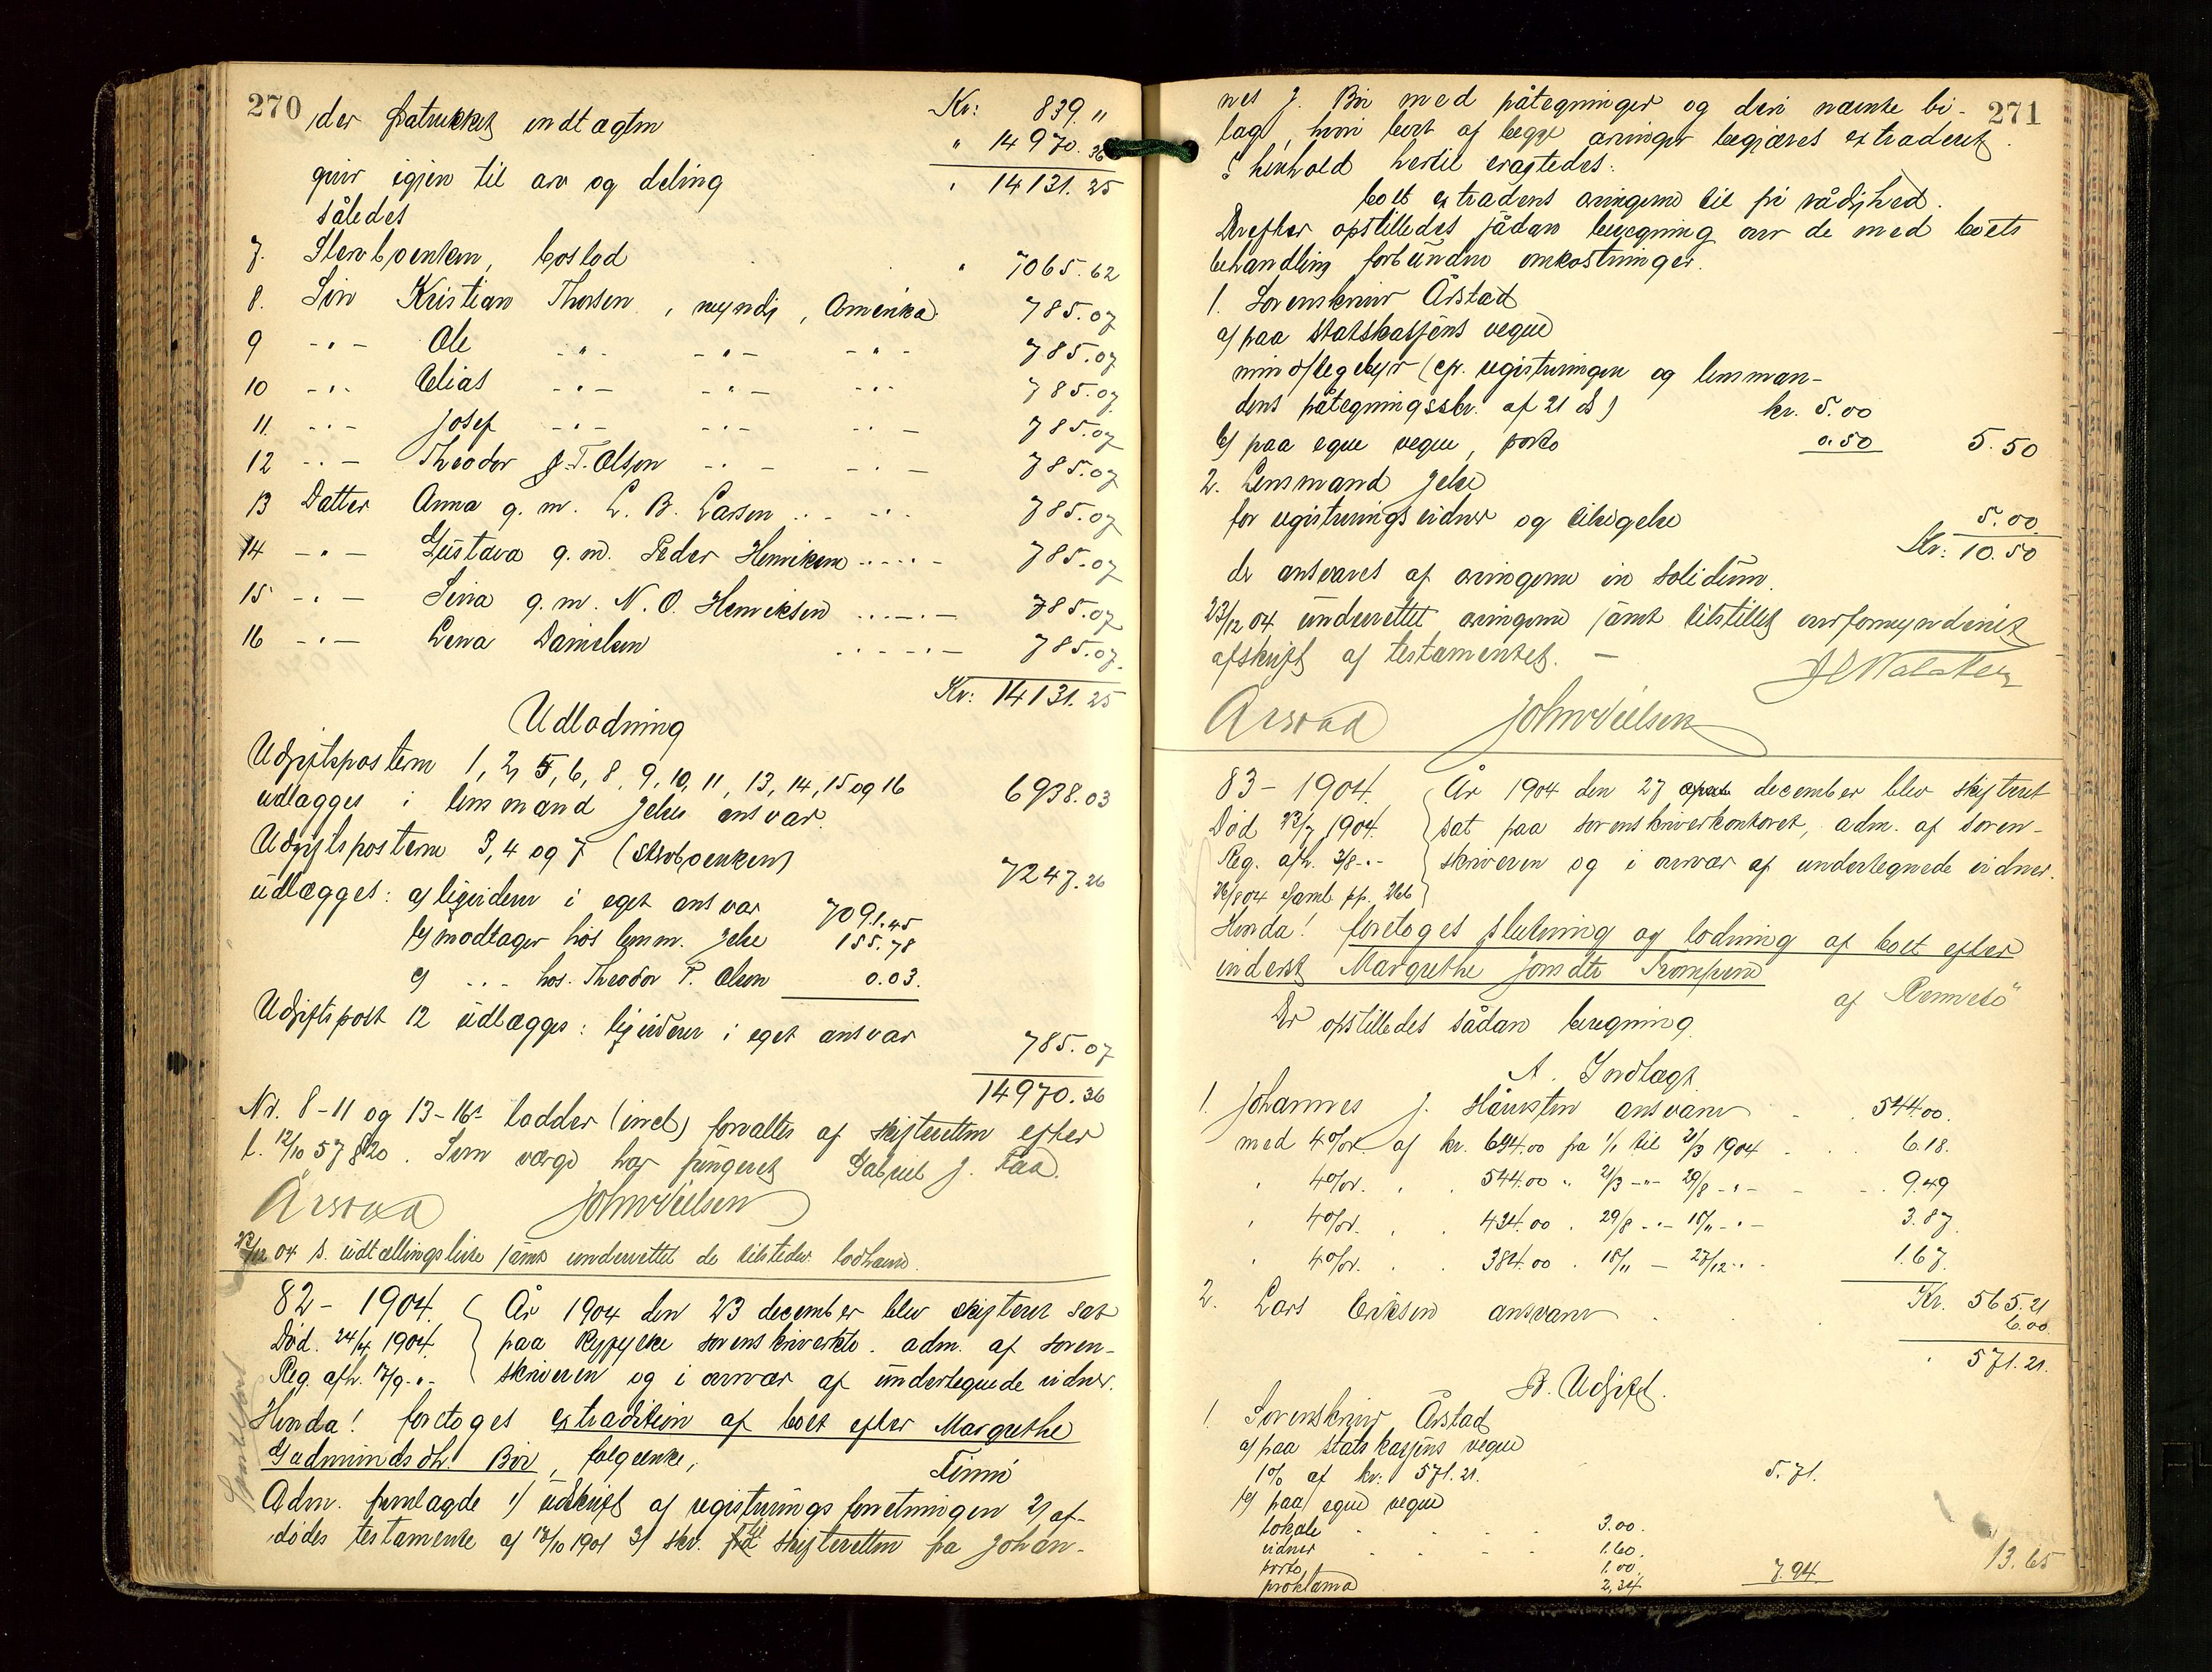 270
der fratrukket indtægten Kr: 839. "
" 14970. 36
giver igjen til arv og deling " 14131. 25
således
7. Sterboenken, boslod " 7065. 62
8. Søn Kristian Thorsen, myndig, Amerika 785.07
9 -"- Ole -"- -"- -"- 785.07
10 -"- Elias -"- -"- -"- 785.07
11. -"- Josef -"- -"- -"- 785.07
12 -"- Theodor T. Olsen -"- -"- 785.07
13 Datter Anna g. m. L. B. Larsen -"- 785.07
14 -"- Gustava g. m. Peder Henriksen 785.07
15 -"- Sina g. m. N. O. Henriksen 785.07
16 -"- Lena Danielsen 785.07.
Kr: 14131. 25
Udlodning
Udgiftsposterne 1, 2, 5, 6, 8, 9, 10, 11, 13, 14, 15 og 16
udlægges i lensmand Jelsa ansvar. 6938.03
Udgiftsposterne 3, 4 og 7 (sterboenken) 7247. 26
udlægges: a) ligviderer i eget ansvar 7091.45
b) modtager hos lensm. Jelsa 155.78
c) -"- hos Theodor T. Olsen 0.03.
Udgiftspost 12 udlægges: ligviderer i eget ansvar 785.07
14970. 36
Nr. 8-11 og 13-16s lodder forvaltes af skifteretten efter
l. 12/10 57 § 20. Som værge har fungeret Gabriel J.
Årstad John Nielsen
23/12 04 s. udtællingsliste samt underrettet de tilstedev. lodhavere.
82 - 1904. År 1904 den 23 december blev skifteret sat
Død. 24/4 1904. paa Ryfylke sorenskriverkto. adm. af soren-
Reg. afh. 17/9 -"- skriveren og i overvær af undertegnede vidner.
Hvorda! foretoges extradition af boet efter Margrethe
Gudmundsdtr. Bø, folgeenke, Finnø
Adm. fremlagde 1) udskrift af registreringsforretningen 2) af-
dødes testamente af 12/10 1901 3) skr. til skifteretten fra Johan-
271
nes J. Bø med påtegninger og den nævnte bi-
lag, hvori boet af begge arvinger begjæres extraderet.
I henhold hertil eragtedes:
boet extraderes arvingerne til fri rådighed.
Derefter opstilledes sådan beregning over de med boets
behandling forbundne omkostninger.
1. Sorenskriver Årstad
a) paa statskassens vegne
min. skiftegebyr (cfr. registreringen og lensman-
dens påtegningsskr. af 21 ds) kr. 5.00
b) paa egne vegne, porto 0.50 5.50
2. Lensmand Jelsa
for registreringsvidner og tilsigelse 5.00
Kr: 10.50
der ansvares af arvingerne in solidum.
23/12 04 underrettet arvingerne samt tilstillet overformynderiet
afskrift af testamentet. –
Årstad John Nielsen
83 - 1904. År 1904 den 27 december blev skifteret
Død 23/7 1904. sat paa sorenskriverkontoret, adm. af soren-
Reg. afh. 3/8 -"- skriveren og i overvær af undertegnede vidner.
26/8 04 Saml. pr.
Hvorda! foretoges slutning og lodning af boet efter
inderst Margrethe Jonsdtr
af Rennesø
Der opstilledes sådan beregning
A. Indtægt.
1. Johannes J. ansvarer 544.00.
med 4% r. af kr. 694.00 fra 1/1 til 21/3 1904 6.18.
" 4% r. 544.00 " 21/3 -"- 29/8 -"- 9.49
" 4% r. 434.00 " 29/8 -"- 18/11 -"- 3.87
" 4% r. 384.00 " 18/11 - 27/12 -"- 1.67.
Kr. 565.21
2. Lars Eriksen ansvarer 6.00.
" 571.21.
B. Udgift.
1. Sorenskriver Årstad
a) paa statskassens vegne
1% af kr: 571.21. 5.71.
b) paa egne vegne
lokale 3.00.
vidner 1.60.
porto 1.00.
proklama 2,34 7.94 13.65